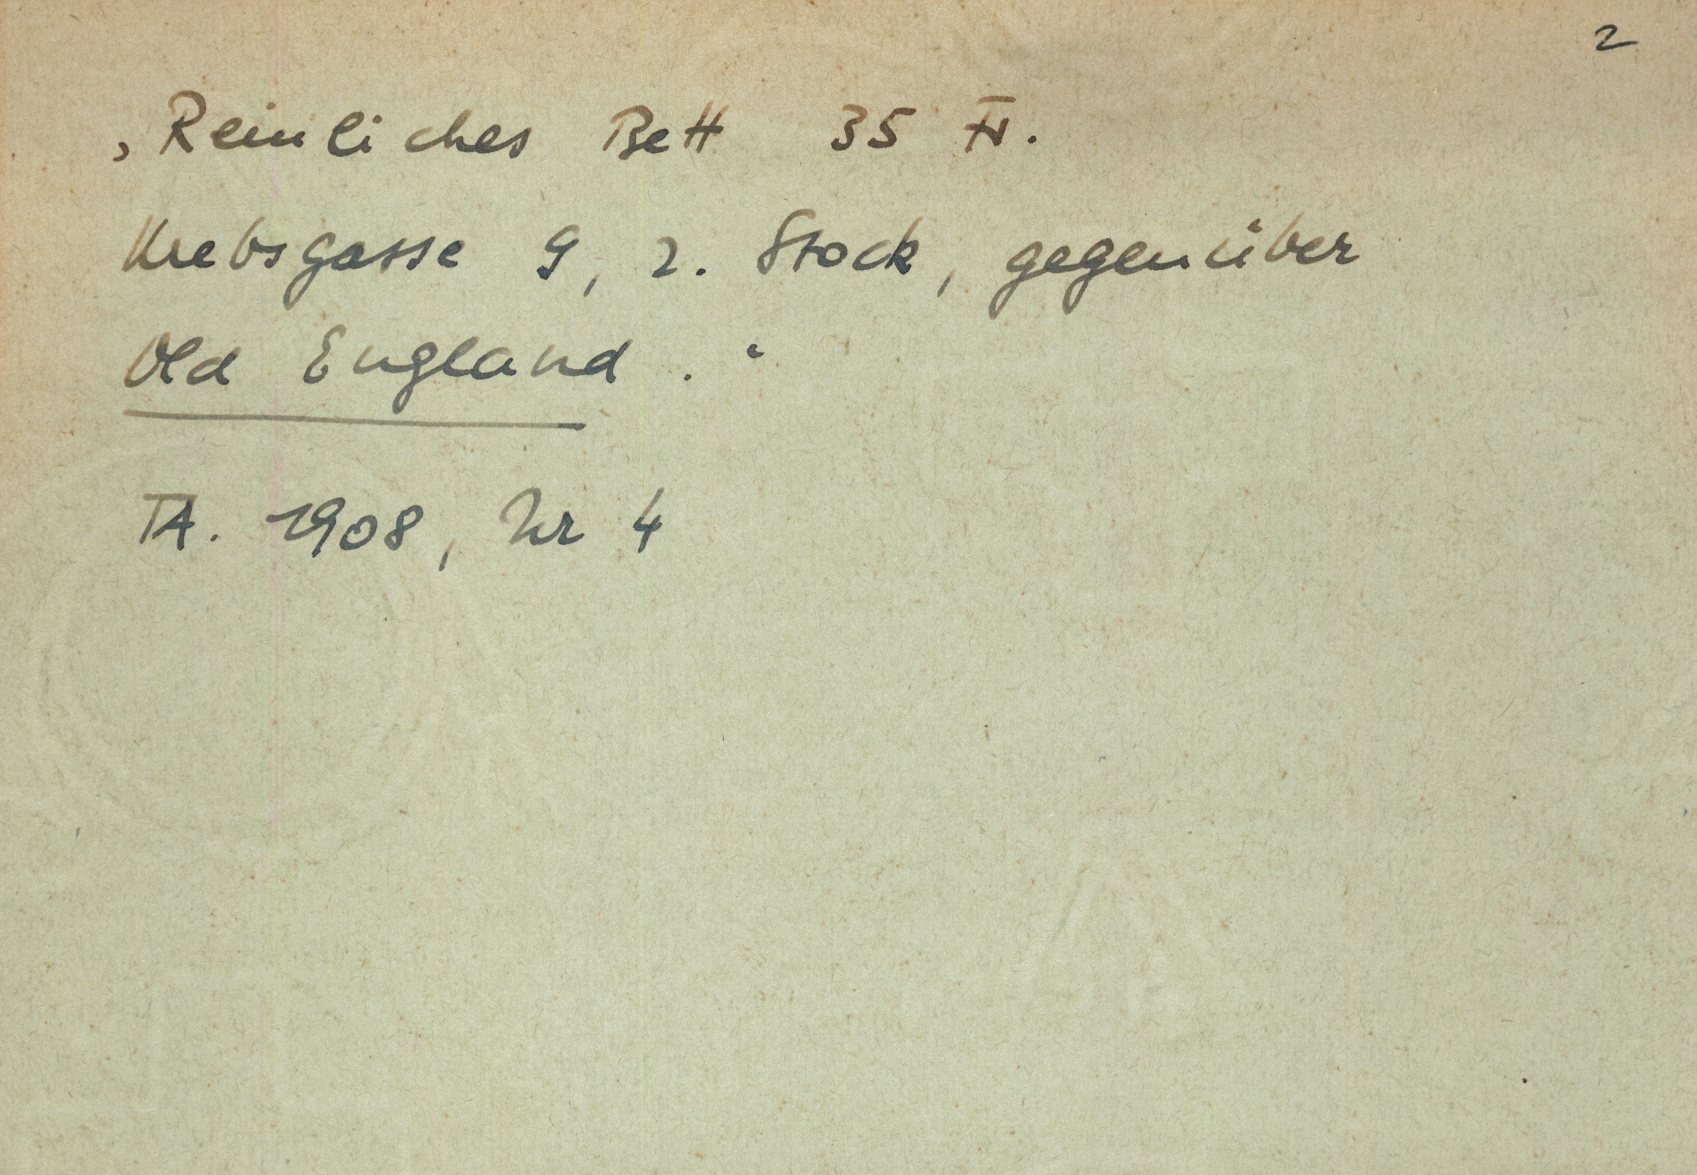 2
‚Reinliches Bett 35 Fr.
Krebsgasse 9, 2. Stock, gegenüber
Old England.‘
TA. 1908, Nr 4